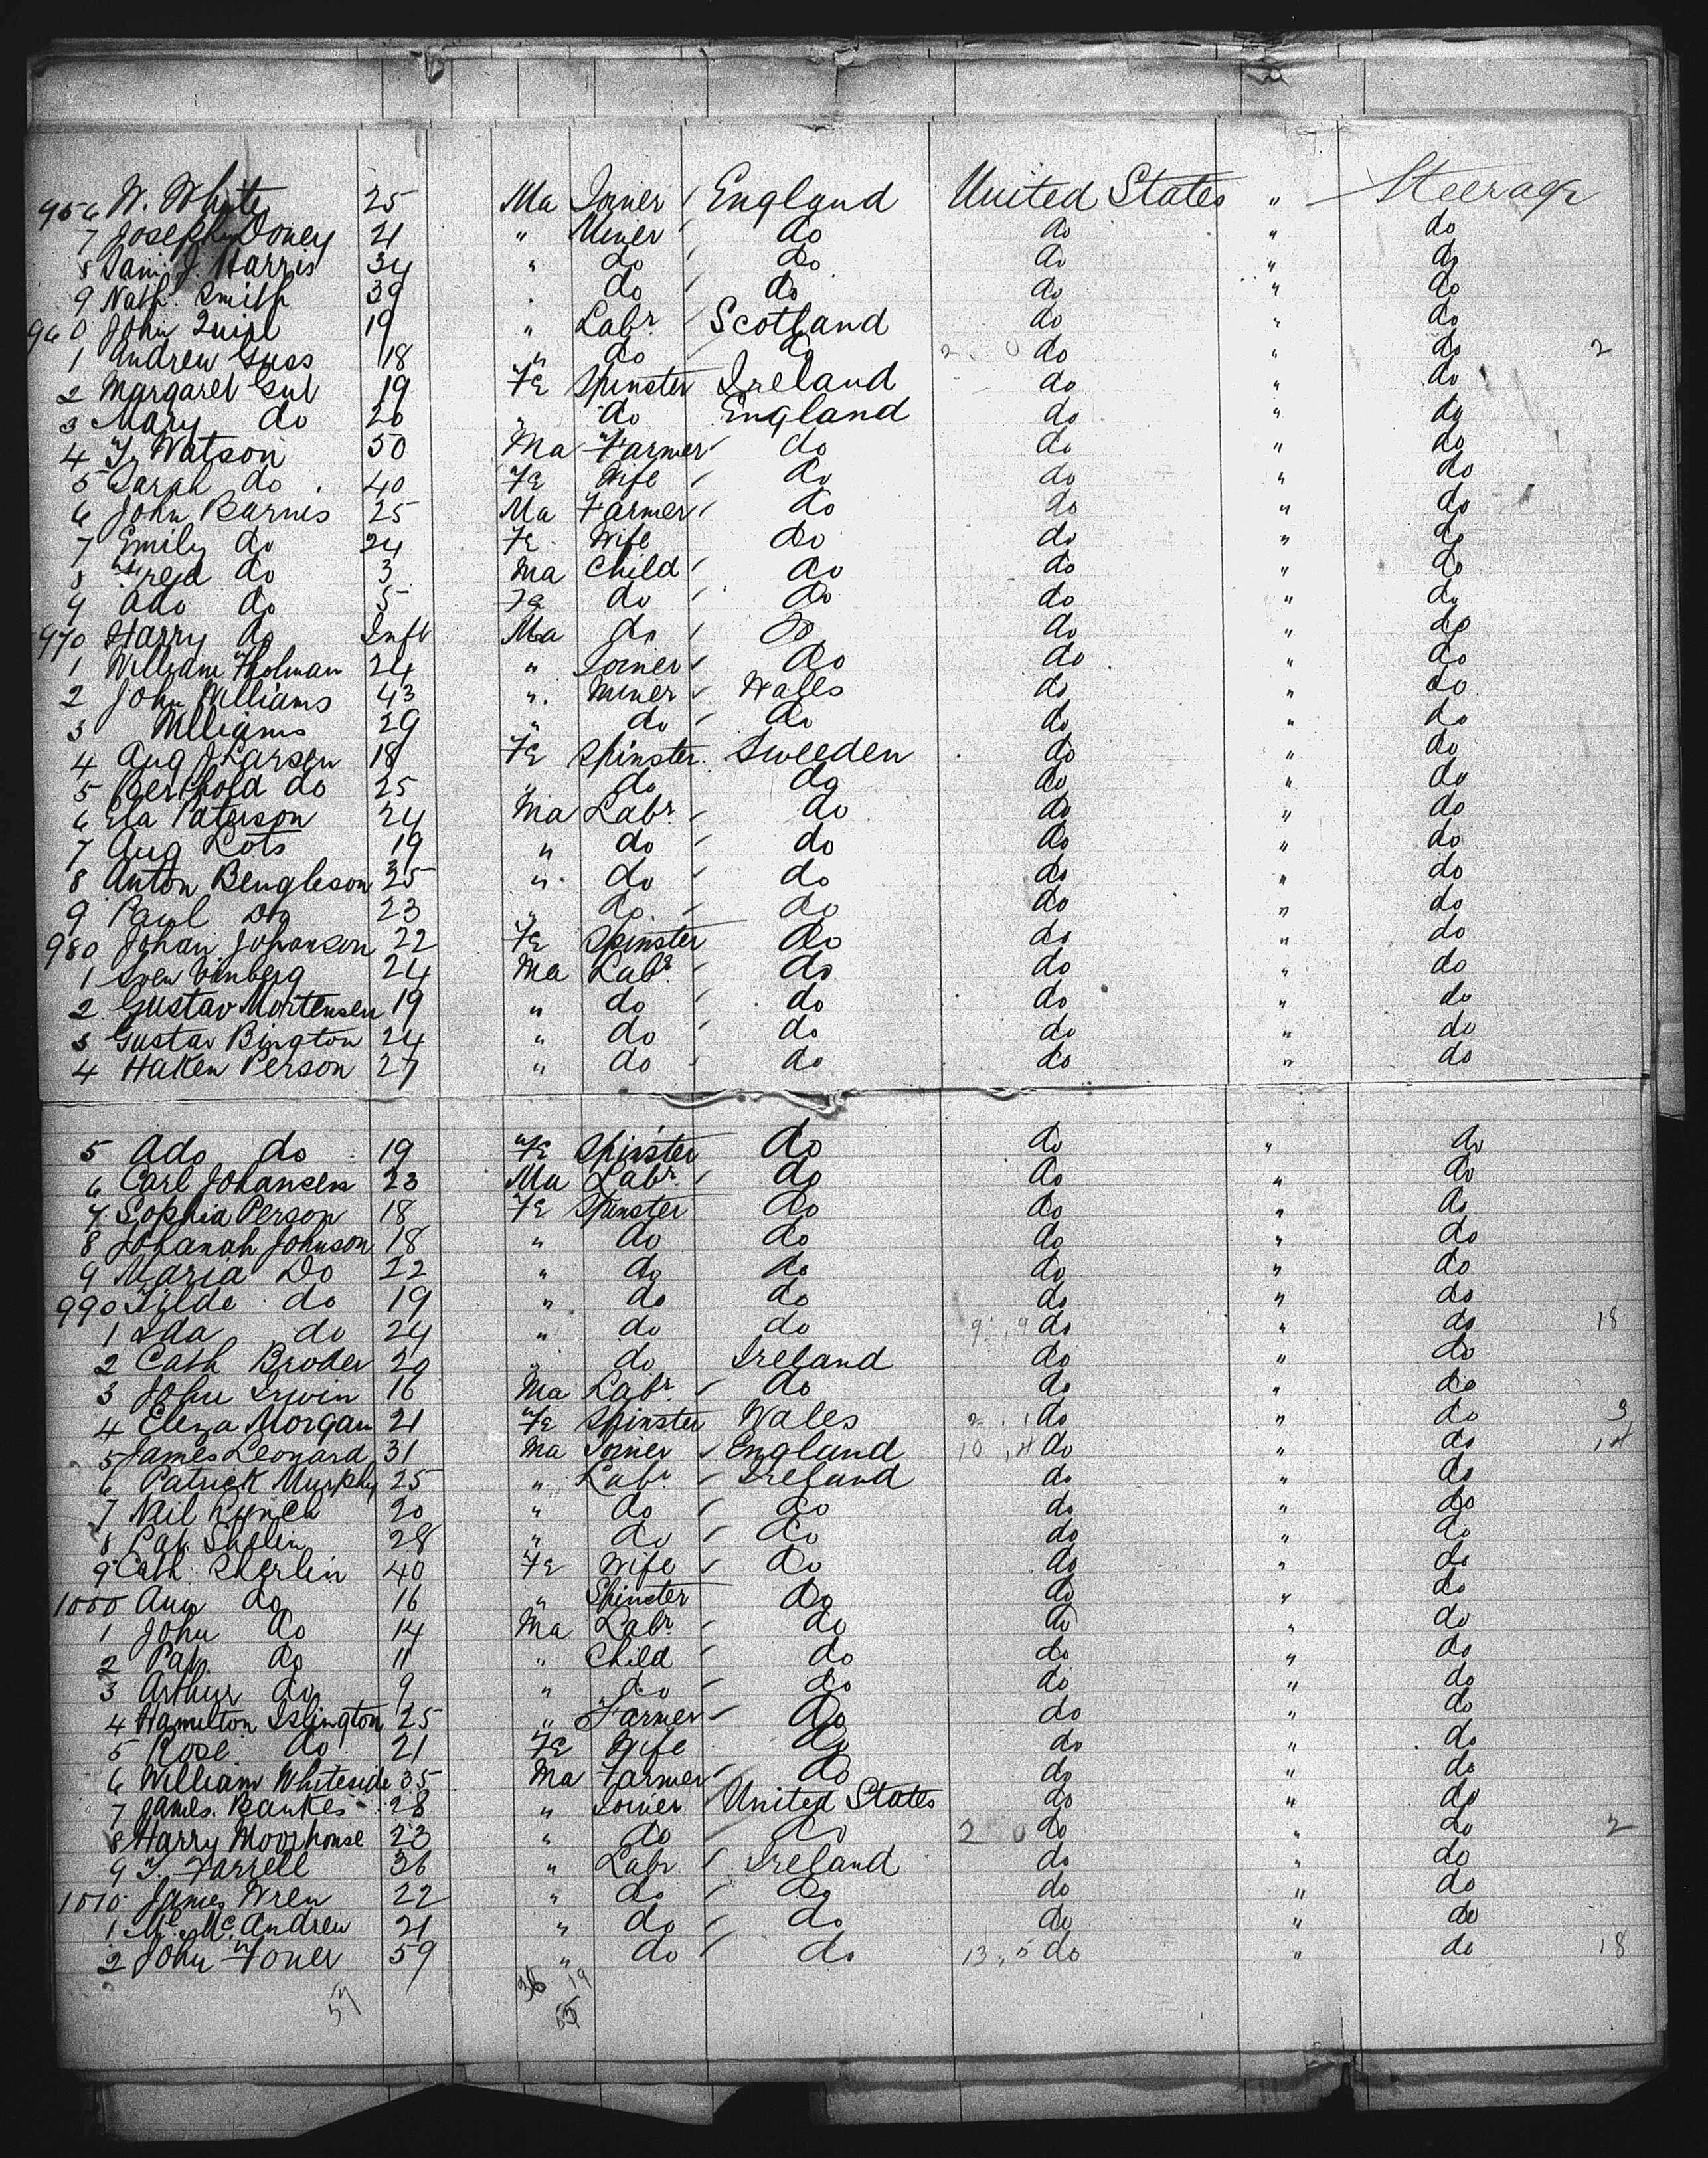 956 W. White 25 Ma Joiner England United States " Steerage
7 Joseph Doney 21 " Miner do do " do
8 Saml J. Harris 34 " do do do " do
9 Nath. Smith 39 " do do do " do
960 John 19 " Labr Scotland do " do
1 Andrew Guss 18 " do do 2 . 0 do " do 2
2 Margaret 19 Fe Spinster Ireland do " do
3 Mary do 20 " do England do " do
4 Watson 50 Ma Farmer do do " do
5 Sarah do 40 Fe Wife do do " do
6 John Barnes 25 Ma Farmer do do " do
7 Emily do 24 Fe Wife do do " do
8 Fred do 3 Ma Child do do " do
9 Ado do 5 Fe do do do " do
970 Harry do Inft Ma do do do " do
1 William Tholman 24 " Joiner do do " do
2 John Williams 43 " Miner Wales do " do
3 Williams 29 " do do do " do
4 Aug J Larsen 18 Fe Spinster Sweeden do " do
5 Berthold do 25 " do do do " do
6 Ela Paterson 24 Ma Labr do do " do
7 Aug Lots 19 " do do do " do
8 Anton Bengleson 25 " do do do " do
9 Paul Do 23 " do do do " do
980 Johan Johanson 22 Fe Spinster do do " do
1 Sven Vinberg 24 Ma Labr do do " do
2 Gustav Mortensen 19 " do do do " do
3 Gustav Bington 24 " do do do " do
4 Haken Person 27 " do do do " do
5 Ado do 19 Fe Spinster do do " do
6 Carl Johansen 23 Ma Labr do do " do
7 Sophia Person 18 Fe Spinster do do " do
8 Johanah Johnson 18 " do do do " do
9 Maria Do 22 " do do do " do
990 Tilde do 19 " do do do " do
1 Ida do 24 " do do 9 . 9 do " do 18
2 Cath Broder 20 " do Ireland do " do
3 John Irwin 16 Ma Labr do do " do
4 Eliza Morgan 21 Fe Spinster Wales 2 . 1 do " do 3
5 James Leonard 31 Ma Joiner England 10 , 14 do " do 14
6 Patrick Murphy 25 " Labr Ireland do " do
7 Neil Lynch 20 " do do do " do
8 Pat. Sholin 28 " do do do " do
9 Cath. Sherlin 40 Fe Wife do do " do
1000 Ann do 16 " Spinster do do " do
1 John do 14 Ma Labr do do " do
2 Pat. do 11 " Child do do " do
3 Arthur do 9 " do do do " do
4 Hamilton Islington 25 " Farmer do do " do
5 Rose do 21 Fe Wife do do " do
6 William Whiteside 35 Ma Farmer do do " do
7 James. Bankes 28 " Joiner United States do " do
8 Harry Moorhouse 23 " do do 2 0 do " do 2
9 Farrell 36 " Labr Ireland do " do
1010 James Wren 22 " do do do " do
1 Ml. McAndrew 21 " do do do " do
2 John Foner 59 " do do 13 , 5 do " do 18
57 36 19